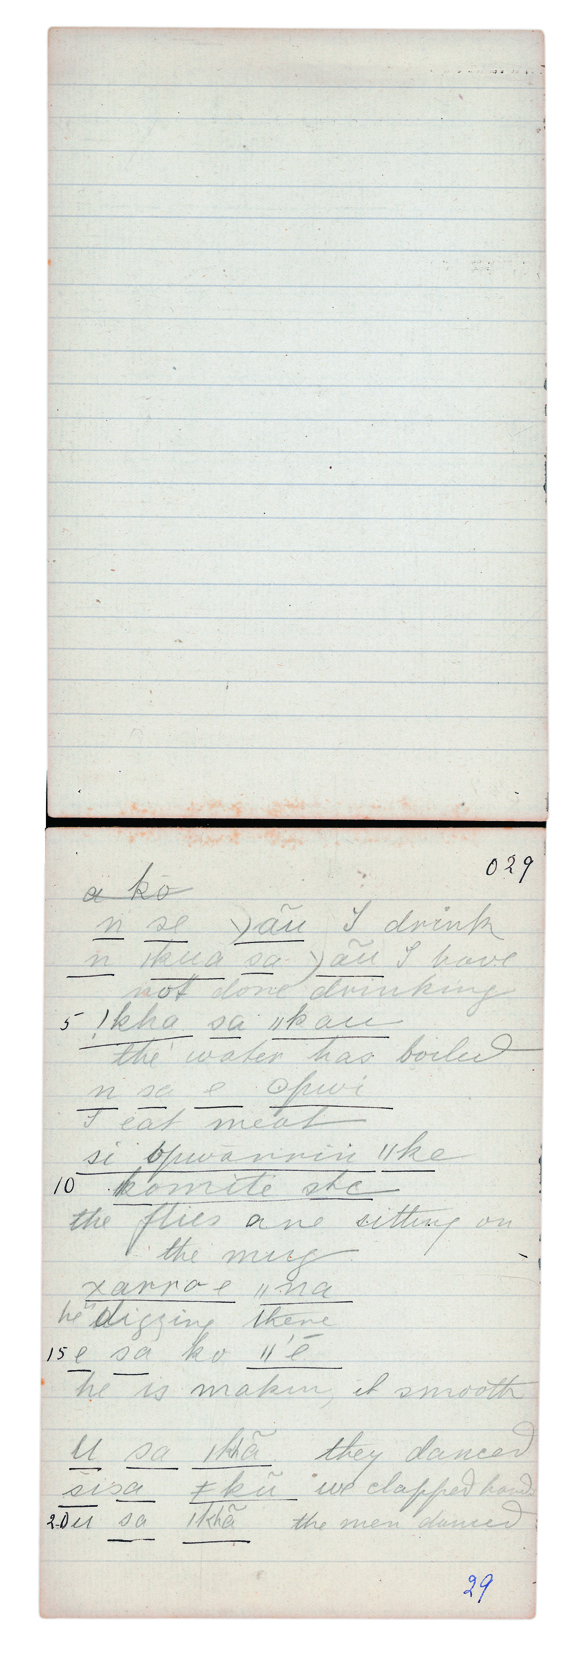 029
a ko
n se )ãu I drink
n ǀkua sa )ãu I have
not done drinking
5 !kha sa ǁkau
the water has boiled
n sa e ʘpwi
I eat meat
si ʘpwarriri ǁke
10 komite
the flies are sitting on
the mug
xarro e ǁna
he digging there
15 e sa ko ǁ'ē
he is makin, it smooth
U sa ǀkhã they danced
sisa ǂkũ we clapped hands
20 u sa ǀkhã the men danced
29